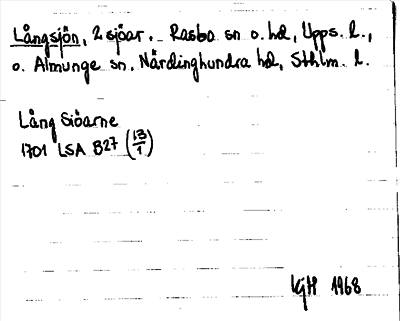 Långsjön, 2 sjöar. – Rasbo sn o. hd, Upps. l.,
o. Almunge sn, Närdinghundra hd, Sthlm. l.
Lång Siöarne
1701 LSA B27 (13/1)
KjH 1968